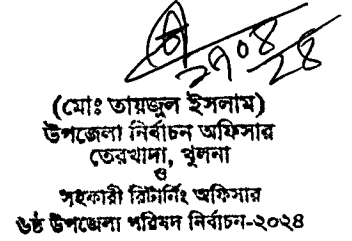 ২৭০৪
২৪
(মোঃ তায়জুল ইসলাম)
উপজেলা নির্বাচন অফিসার
তেরখাদা, খুলনা
ও
সহকারী রিটার্নিং অফিসার
৬ষ্ঠ উপজেলা পরিষদ নির্বাচন-২০২৪